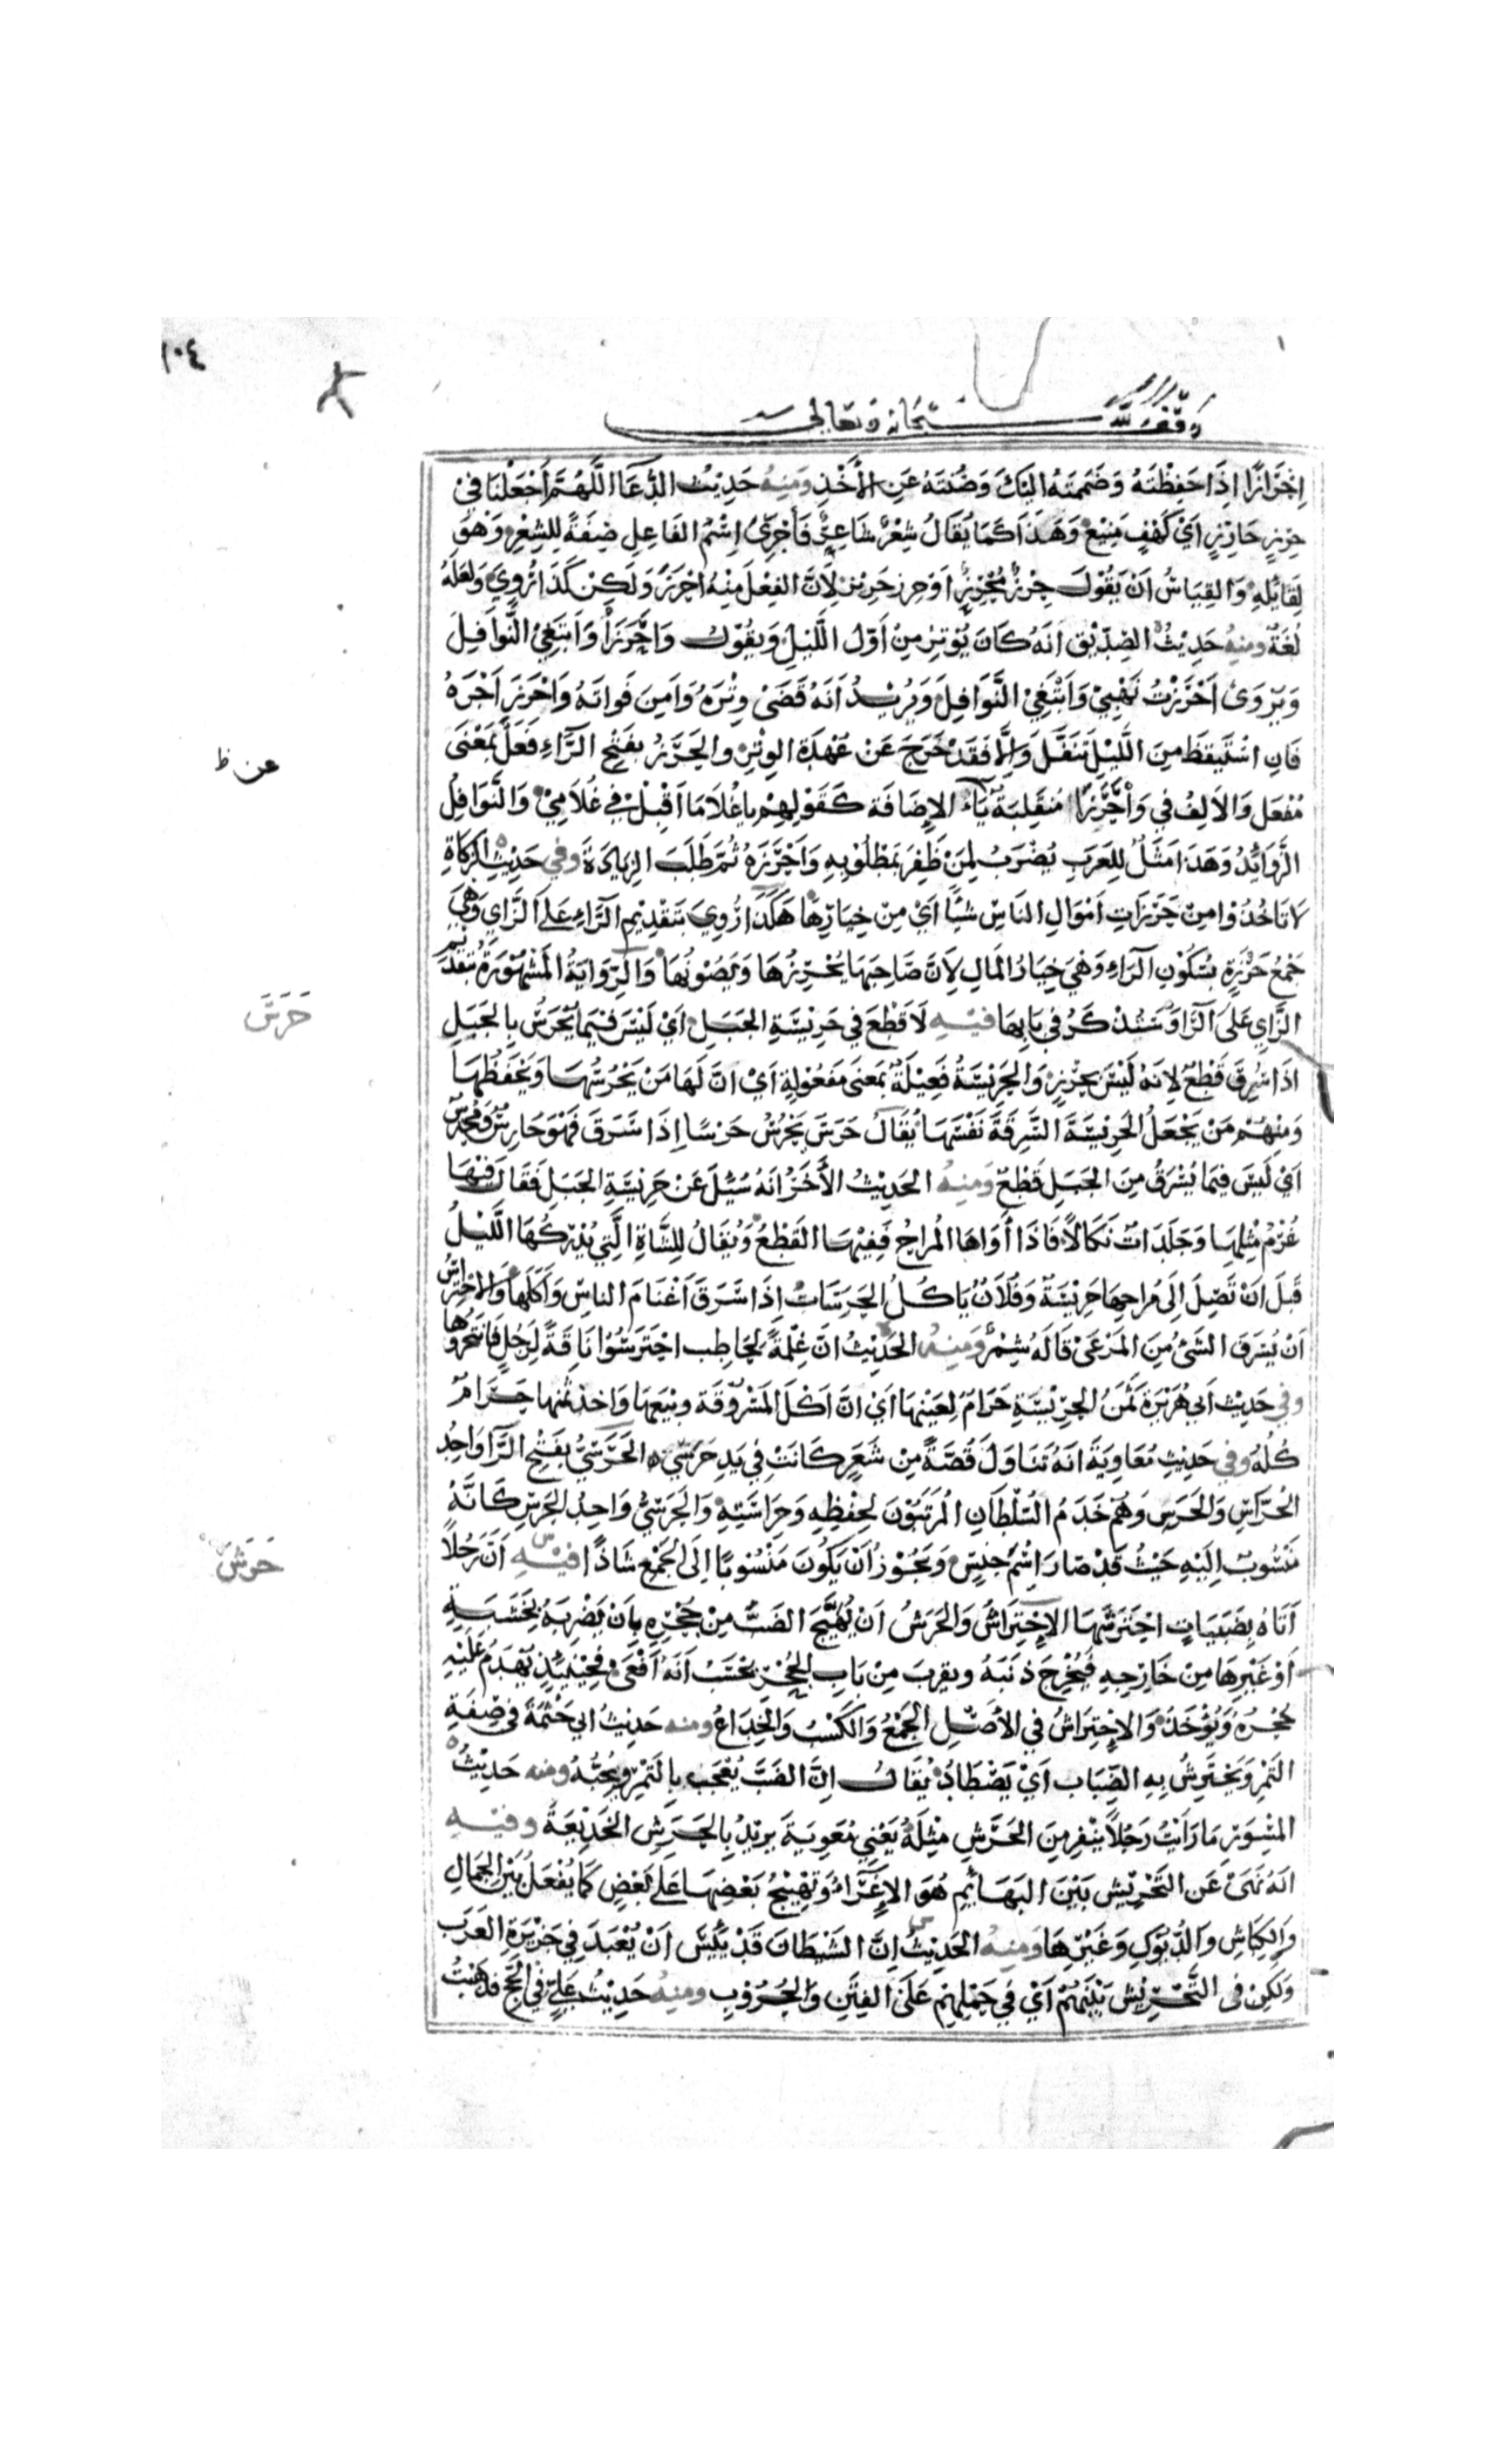 ١٠٤
وقف لله سبحانه وتعالى
إحْرَازًا إِذَا حَفِظْتَهُ وَضَمَمْتَهُ إِلَيْكَ وَصُنْتَهُ عَنِ الأَخْذِ وَمِنهُ حَدِيْثُ الدُّعَا اللَّهُمَّ اجْعَلْنَا فِيْ
حِرْزٍ حَارِزٍ أَيْ كَهْفٍ مَنِيْعٍ وَهَذَا كَمَا يُقَالُ شِعْرٌ شَاعِرٌ فَأَجْرَىٰ اِسْمَ الفَاعِلِ صِفَةً لِلشِّعْرِ وَهُوَ
لِقَائِلِهِ وَالقِيَاسُ أَنْ يَقُوْلَ حِرْزٌ مُحْرِزٌ أَوْ حِرز حَرِيْز لِأَنَّ الفِعْلَ مِنْهُ أَحْرَزَ وَلَكِنْ كَذَا رُوِيَ وَلَعَلَّهُ
لُغَةٌ وَمِنهُ حَدِيْثُ الصِّدِّيْقِ أَنَّهُ كَانَ يُوْتِرُ مِنْ أَوَّلِ اللَّيْلِ وَيَقُوْلُ وَاحَرَزَا وَأَبْتَغِيْ النَّوَافِلَ
وَيُرْوَىٰ أَحْرَزْتُ نَهْبِيْ وَأَبْتَغِيْ النَّوَافِلَ وَيُرِيْدُ أَنَّهُ قَضَىٰ وِتْرَهُ وَأَمِنَ فَوَاتَهُ وَأَحْرَزَ أَجْرَهُ
فَإِنِ اسْتَيْقَظَ مِنَ اللَّيْلِ تَنَفَّلَ وَإِلَّا فَقَدْ خَرَجَ عَنْ عُهْدَةِ الوِتْرِ والحَرَزُ بفَتْحِ الرَّاءِ فَعَلٌ بِمَعْنَى
عن ظ
مُفْعَل وَالأَلِفُ فِي وَاحَرَزَا مُنْقَلِبَةٌ يَاء الإِضَافَة كَقَوْلِهِمْ يا غُلَامَا أَقْبِلْ فِي غُلَامِيْ وَالنَّوَافِلُ
الزَّوَائِدُ وَهَذَا مَثَلٌ لِلْعَرَبِ يُضْرَبُ لِمَنْ ظَفِرَ بِمَطْلُوْبِهِ وَأَحْرَزَهُ ثُمَّ طَلَبَ الزِّيَادَةَ وفي حَدِيْثِ الزَّكَاةِ
لا تَاخُذُوْا مِنْ حَرَزَاتِ أَمْوَالِ النَّاسِ شَيْئًا أَيْ مِنْ خِيَارِهَا هَكَذَا رُوِيَ بتَقْدِيْمِ الرَّاءِ عَلَى الزَّاي وَهِيَ
جَمْعُ حَرْزَةٍ بِسُكُوْنِ الرَّاءِ وَهِيَ خِيَارُ المَالِ لِأَنَّ صَاحِبَهَا يُحْرِزُهَا وَيَصُوْنُهَا وَالرِّوَايَةُ المَشْهُوْرَةُ بتَقْدِيْمِ
الزَّايِ عَلَىٰ الرَّا وَسَنَذْكُرُ فِي بَابِهَا فيْهِ لَا قَطْعَ فِي حَرِيْسَةِ الجَبَلِ أَيْ لَيْسَ فِيْمَا يُحْرَسُ بِالجَبَلِ
حَرَسَ
إذَا سُرِقَ قَطْعٌ لِأَنَّهُ لَيْسَ بِحِرْزٍ وَالحَرِيْسَةُ فَعِيْلَةٌ بمَعْنَى مَفْعُوْلَةٍ أَيْ أَنَّ لَهَا مَنْ يَحْرُسُهَا وَيَحْفَظُهَا
وَمِنْهُمْ مَنْ يَجْعَلُ الحَرِيْسَةَ السَّرِقَةَ نَفْسَهَا يُقَالُ حَرَسَ يَحْرُسُ حَرْسًا إِذَا سَرَقَ فَهُوَ حَارِسٌ وَمُحْتَرِسٌ
أَيْ لَيْسَ فِيْمَا يُسْرَقُ مِنَ الجَبَلِ قَطْعٌ وَمِنهُ الحَدِيْثُ الأَخَرُ أَنَّهُ سُئِلَ عَنْ حَرِيْسَةِ الجَبَلِ فَقَالَ فِيْهَا
غُرْمُ مِثْلِهَا وَجَلَدَاتٌ نَكَالًا فَإِذَا أَوَاهَا المُرَاحُ فَفِيْهَا القَطْعُ وَيُقَالُ لِلشَّاةِ الَّتِي يُدْرِكُهَا اللَّيْلُ
قَبْلَ أَنْ تَصِلَ إِلَى مُرَاحِهَا حَرِيْسَةٌ وَفُلَانٌ يَاكُلُ الحَرَسَاتِ إِذَا سَرَقَ أَغْنَامَ النَّاسِ وَأَكَلَهَا وَالاحْتِرَاسُ
أَنْ يُسْرَقَ الشَّئُ مِنَ المَرْعَىٰ قَالَهُ شِمْرٌ وَمِنهُ الحَدِيْثُ أَنَّ غِلْمَةً لِحَاطِب احْتَرَسُوْا نَاقَةً لِرَجُلٍ فَانْتَحَرُوْهَا
وفي حَدِيْثِ أَبِي هُرَيْرَةَ ثَمَنُ الحَرِيْسَةِ حَرَامٌ لِعَيْنِهَا أَيْ أَنَّ أَكْلَ المَسْرُوْقَة وبَيْعَهَا وَأخذ ثمنها حَرَامٌ
كُلُّهُ وفي حَدِيْثِ مُعَاوِيَةَ أَنَّهُ تَنَاوَلَ قُصَّةً مِنْ شَعَرٍ كَانَتْ فِي يَدِ حَرَسِيٍّ الحَرَسِيُّ بفَتْحِ الرَّا وَاحِدُ
الحُرَّاسِ وَالحَرَسِ وَهُمْ خَدَمُ السُّلْطَانِ المُرَتَّبُوْنَ لِحِفْظِهِ وَحِرَاسَتِهِ وَالحَرَسِيُّ وَاحِدُ الحَرَسِ كَانَّهُ
مَنْسُوْبٌ إِلَيْهِ حَيْثُ قَدْ صَارَ إِسْمَ جِنْسٍ وَيَجُوْزُ أَنْ يَكُونَ مَنْسُوبًا إِلَى الجَمْعِ شَاذًا فيْهِ أَنَّ رَجُلًا
حَرَشَ
أَتَاهُ بِضَبَابٍ احْتَرَشَهَا الاِحْتِرَاشُ وَالحَرْشُ أَنْ يُهَيَّجَ الضَّبُّ مِنْ جُحْرِهِ بِأَنْ يَضْرِبَهُ بِخَشَبَةٍ
أَوْ غَيْرِهَا مِنْ خَارِجِهِ فَيُخْرِجَ ذَنَبَهُ ويقرب مِنْ بَابِ الجُحْرِ يَحْسَبُ أَنَّهُ أَفْعَىٰ فَحِيْنَئِذٍ يُهْدَمُ عَلَيْهِ
جُحْرُهُ وَيُؤْخَذُ وَالاحْتِرَاشُ فِي الأَصْلِ الجَمْعُ وَالكَسْبُ وَالخِدَاعُ ومنه حَدِيْثُ أبِي حَثْمَةَ فِي صِفَةِ
التَّمْرِ وَيُحْتَرَشُ بِهِ الضِّبَابُ أَيْ يُصْطَادُ يُقَالُ إِنَّ الضَّبَّ يُعْجَبُ بِالتَّمْرِ وَيُحِبُّهُ ومنه حَدِيْثُ
المِسْوَرِ مَا رَأَيْتُ رَجُلًا يَنْفِرُ مِنَ الحَرْشِ مِثْلَهُ يَعْنِي مُعَوِيَةَ يرِيْدُ بِالحَرْشِ الخَدِيْعَةَ وفيْهِ
أَنَّهُ نَهَىٰ عَن التَّحْرِيْشِ بَيْنَ البَهَائِمِ هُوَ الإِغْرَاءُ وَتَهْيِيْجُ بَعْضِهَا عَلَى بَعْضٍ كَمَا يُفْعَلُ بَيْنَ الجِمَالِ
وَالكِبَاشِ وَالدُّيُوكِ وَغَيْرِهَا وَمِنهُ الحَدِيْثُ إِنَّ الشَّيْطَانَ قَدْ يَئِسَ أَنْ يُعْبَدَ فِي جَزِيْرَةِ العَرَبِ
وَلَكِنْ فِي التَّحْرِيْشِ بَيْنَهُمْ أَيْ فِي حَمْلِهِمْ عَلَىٰ الفِتَنِ وَالحُرُوْبِ ومِنهُ حَدِيْثُ عَلِيٍّ فِي الحَجِّ فَذَهَبْتُ